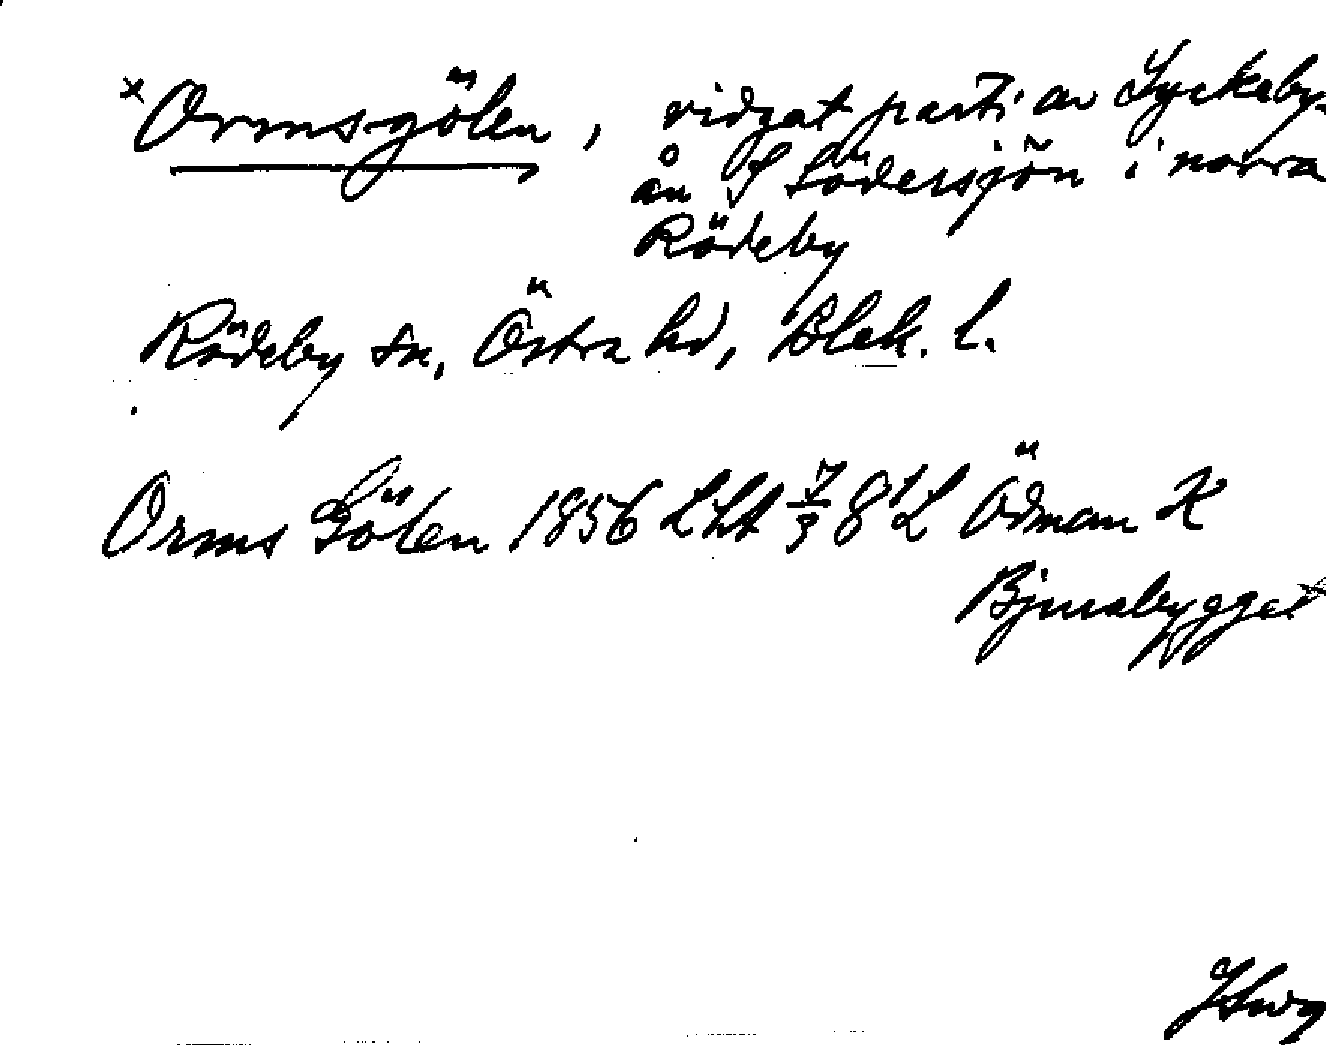 ×Ormsgölen, vidgat parti av Lyckeby-
ån S Södersjön i norra
Rödeby
Rödeby sn, Östra hd, Blek. l.
Orms Gölen 1856 Lht 7/9 8'L Ödman K
Bjursbygget